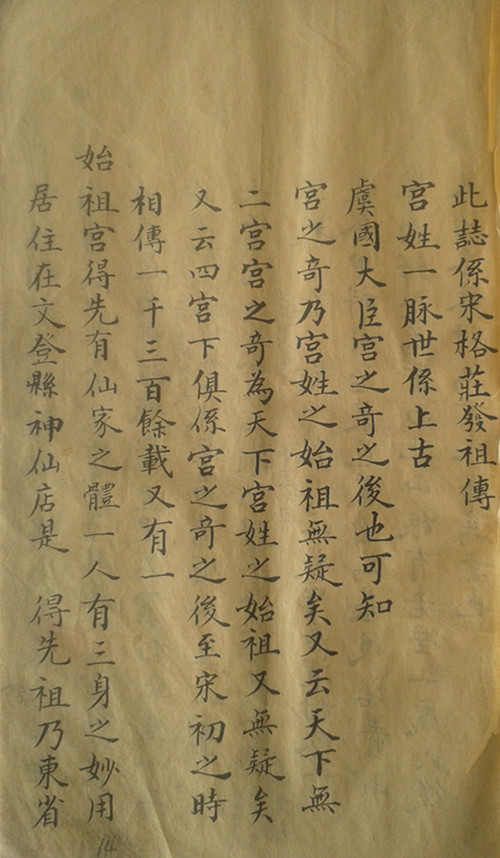 此誌係宋格莊發祖傳
宮姓一脉世係上古
虞國大臣宮之奇之後也可知
宮之奇乃宮姓之始祖無疑矣又云天下無
二宮宮之奇為天下宮姓之始祖又無疑矣
又云四宮下俱係宮之奇之後至宋初之時
相傳一千三百餘載又有一
始祖宮得先有仙家之體一人有三身之妙用
居住在文登縣神仙店是 得先祖乃東省
14